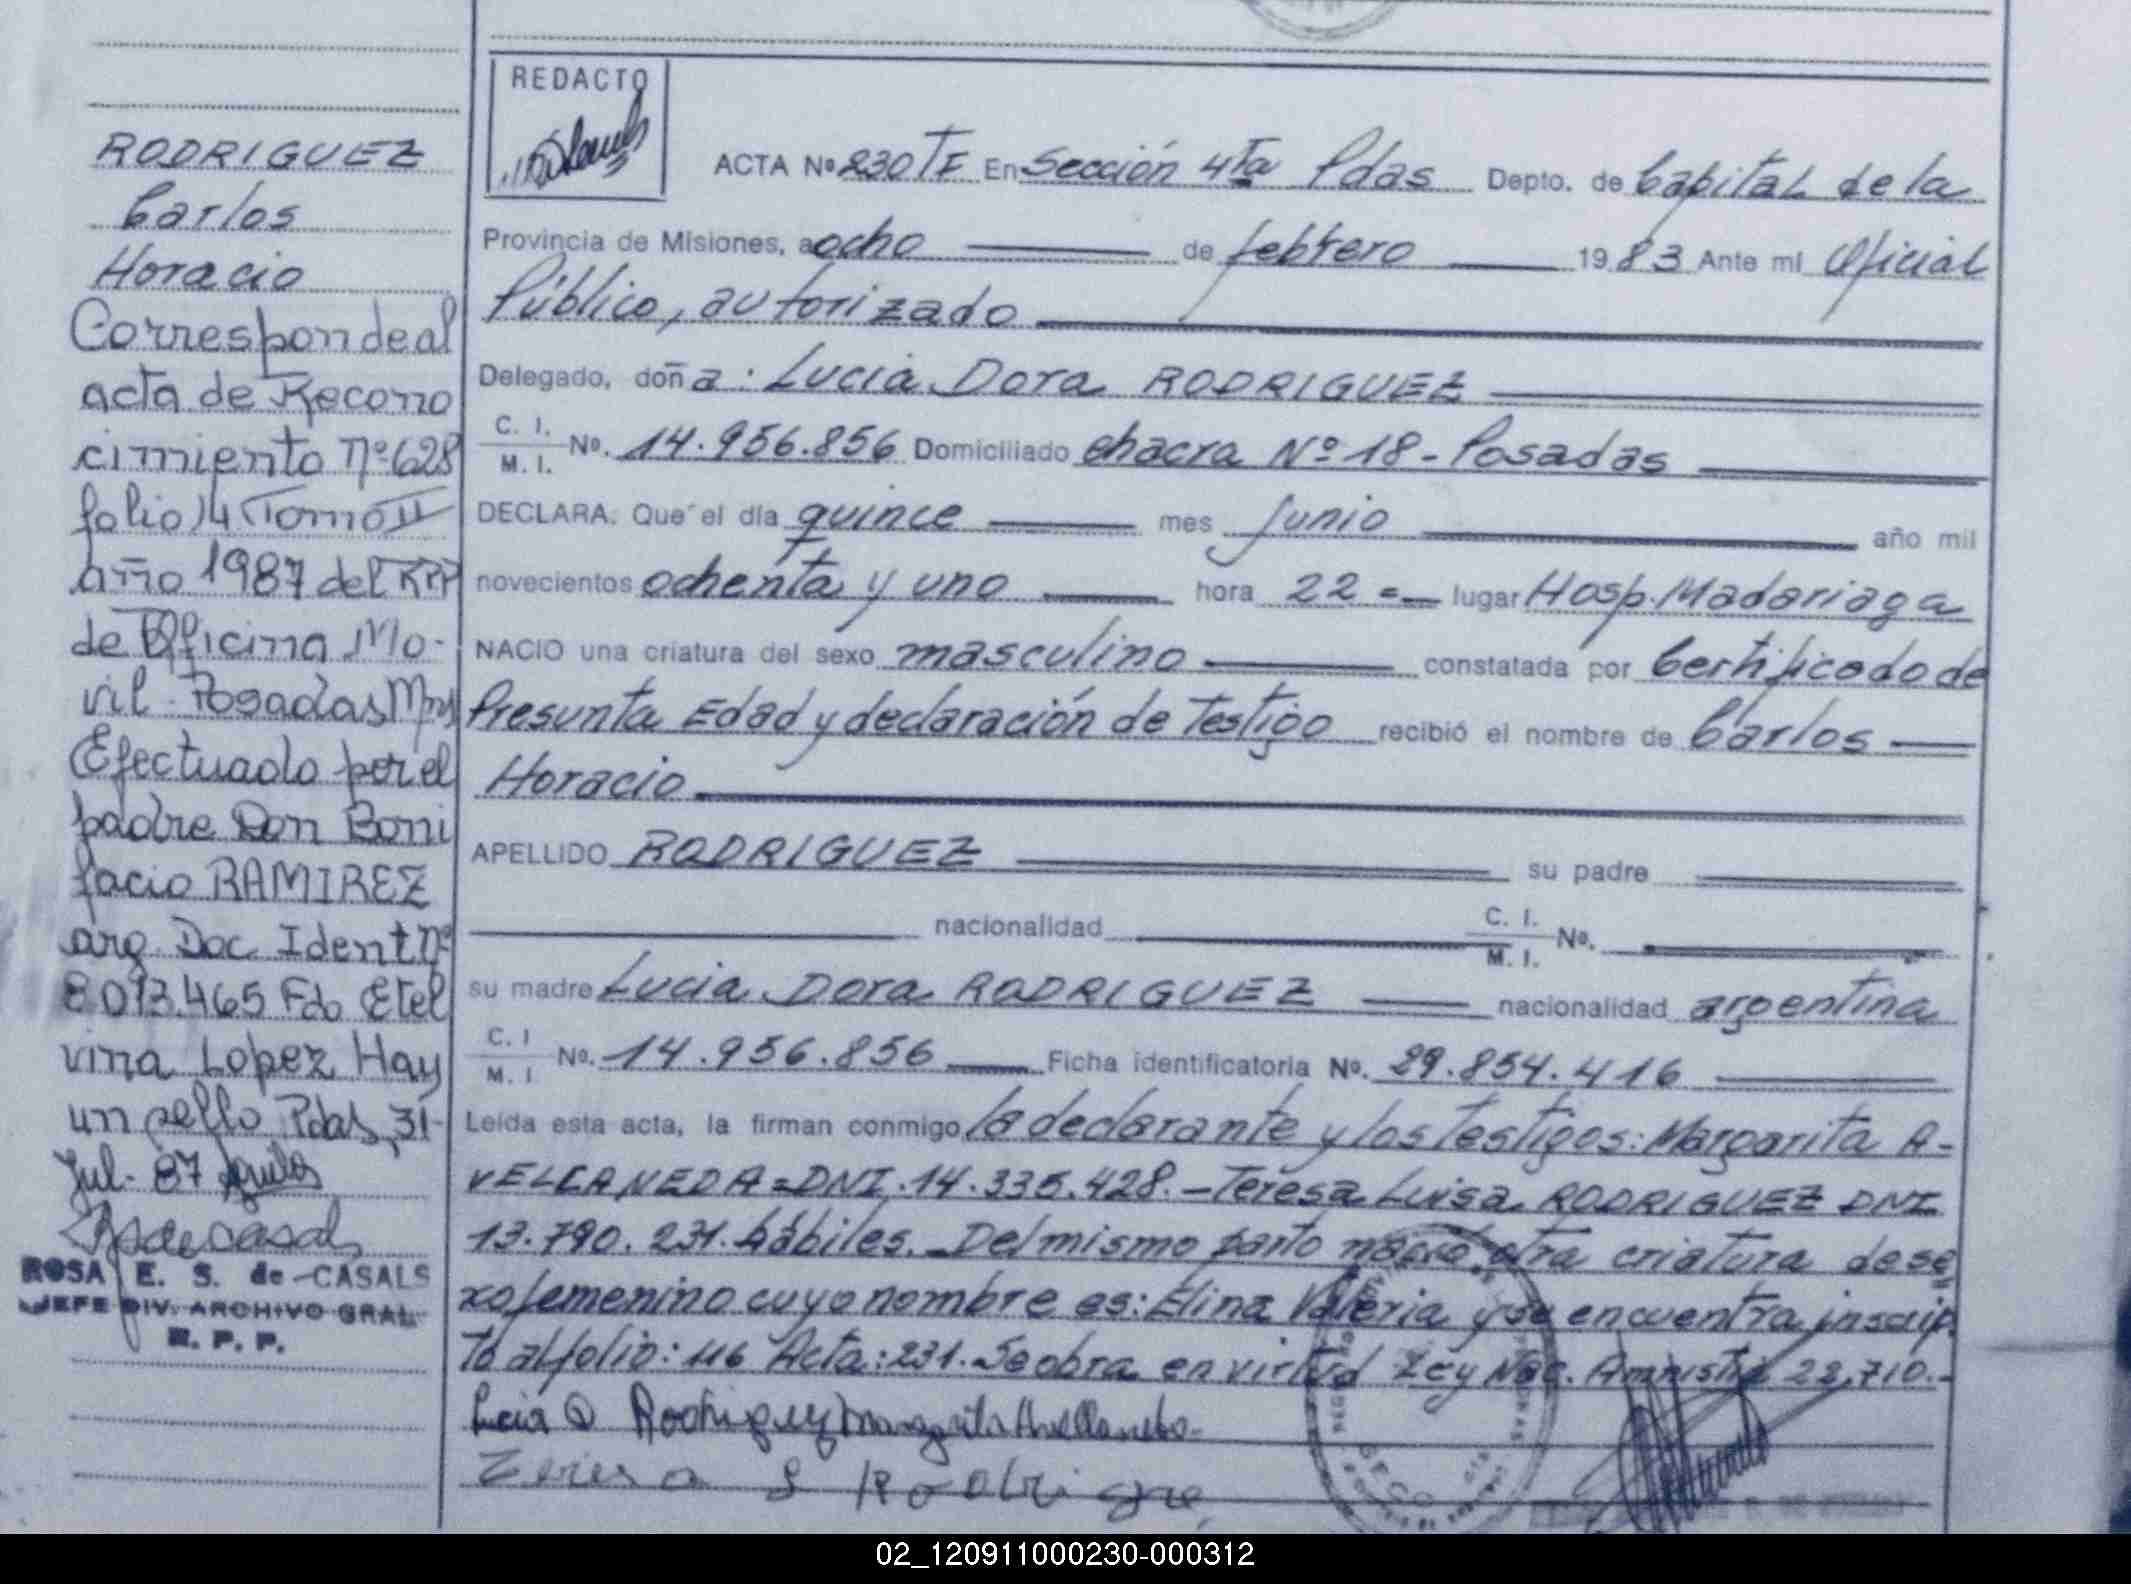 RODRIGUEZ
Carlos
Horacio
Corresponde al
acta de Recono
cimiento Nº 628
folio 14 Tomo II
año 1987 del RPP
de Oficina Mo-
vil - Posadas Mns
Efectuado por el
padre Don Boni
facio RAMIREZ
arg. Doc Ident Nº
8013.465 Fdo Etel
vina Lopez Hay
un sello Pdas, 31-
Jul- 87
ROSA E. S. de CASALS
JEFE DIV. ARCHIVO GRAL
R. P. P.
REDACTO
ACTA Nº 230 TI En Sección 4Ta Pdas Depto. de Capital de la
Provincia de Misiones, a ocho de febrero 1983 Ante mi Oficial
Público, autorizado
Delegado, doña: Lucia Dora RODRIGUEZ
C. I.
M. I. Nº. 14.956.856 Domiciliado chacra Nº 18 - Posadas
DECLARA. Que el día quince mes junio año mil
novecientos ochenta y uno hora 22 = lugar Hosp. Madariaga
NACIO una criatura del sexo masculino constatada por Certificado de
Presunta Edad y declaración de Testigo recibió el nombre de Carlos
Horacio
APELLIDO RODRIGUEZ su padre
nacionalidad C. I.
M. I. Nº.
su madre Lucia Dora RODRIGUEZ nacionalidad argentina
C. I
M. I Nº. 14.956.856 Ficha identificatoria Nº. 29.854.416
Leída esta acta, la firman conmigo la declarante y los Testigos: Margarita A-
VELLANEDA = DNI. 14.335.428. - Teresa Luisa RODRIGUEZ DNI
13.790.231. hábiles. Del mismo parto nació otra criatura de se
xo femenino cuyo nombre es: Elina Valeria y se encuentra inscrip
to al folio: 116 Acta: 231. Se obra en virtud Ley Nac. Amnistía 22.710.-
Lucia D Rodriguez Margarita Avellaneda
Teresa L Rodrigue
02_120911000230-000312